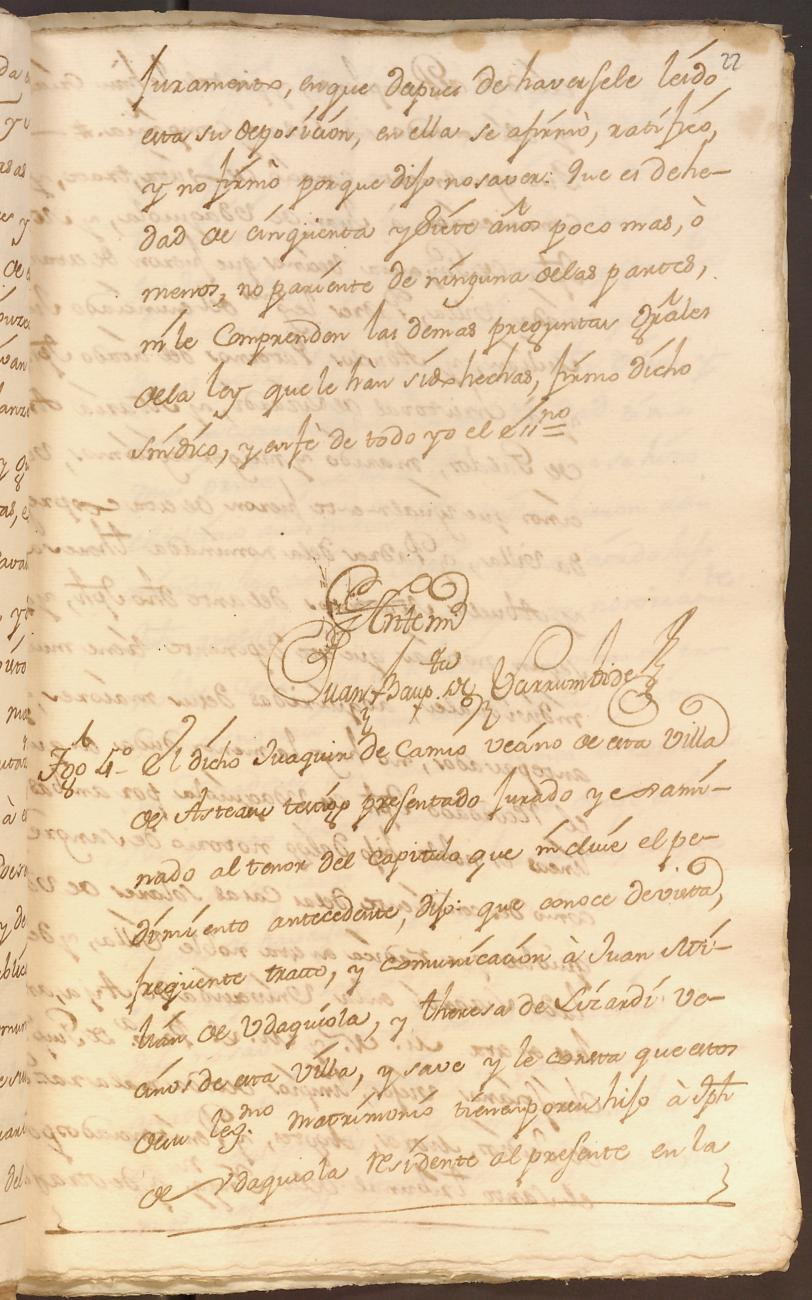 22
Juramento, enque depues de haversele leído
esta su deposición, en ella se afirmò, ratificó,
y no firmò porque dijo no saver: Que es de he-
dad de cinqüenta y siete años poco mas, ò
menos, no pariente de ninguna delas partes,
ni le Comprenden las demas preguntas Grâles
dela ley que le hàn sido hechas, firmo dícho
síndico, y enfè de todo yo el essno
Antemi
Juan Bauptta de Larrumbide
Tgo 4º El dícho Juaquin de Camio vecíno de esta Villa
de Asteasu testigo presentado Jurado y exami-
nado al tenor del Capitulo que incluie el pe-
dimíento antecedente, dijo: que conoce devista,
freqüente tratto, y comunicacíon à Juan Mi-
de Vdaquiola, y Theresa de Lizardi ve-
cínos de esta Villa, y save y le consta que estos
desu legmo Matrímonío tienen porsu hijo à Jph
de Vdaquiola residente al presente en la